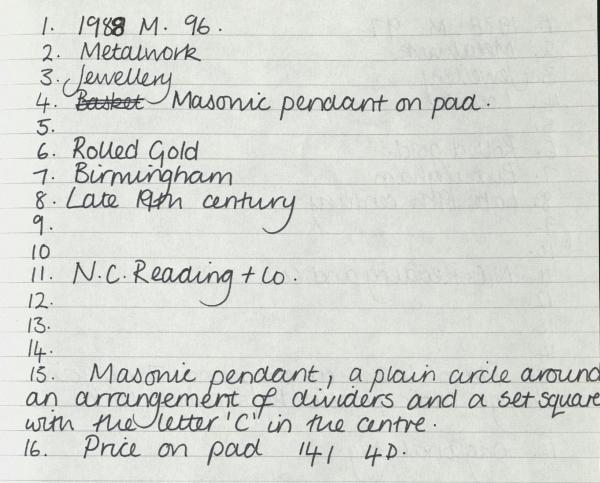 1. 1988 M. 96.
2. Metalwork
3. Jewellery
4. Basket Masonic pendant on pad.
5.
6. Rolled Gold
7. Birmingham
8. Late 19th century
9.
10
11. N.C. Reading + Co.
12.
13.
14.
15. Masonic pendant, a plain circle around
an arrangement of dividers and a set square
with the letter 'C' in the centre.
16. Price on pad 141 4D.